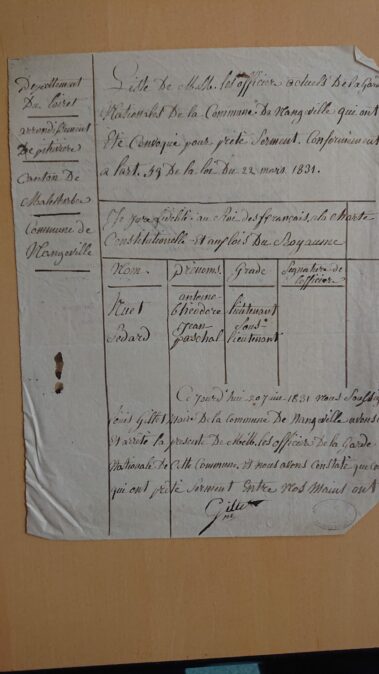 Departement
Du Loiret
arrondissement
De pithivere
Canton De
Malesherbe
Commune de
Nangeville
Liste De Mess. les officier actuels De la Gard
Nationales De la Commune De Nangeville qui ont
Eté Convoqué pour prété Serment. Conformement
a l'art. 59 De la loi Du 22 mars 1831.
Je jure fidélité au Roi des français, a la charte
Constitutionelle Et au lois Du Royaume
Nom. prénoms. Grade Signature de
l'officier
Huet antoine theodore lieutenant
Bedard jean paschal Sous lieutenant
Ce jourd'hui 20 juin 1831 Nous Soussig
Louis Gillet Maire De la Commune De Nangeville avons
Et arreté la presente De Mess. les officier De la Garde
Nationale de Cette Commune, et nous avons Constaté que Ce
qui ont prété Serment Entre Nos Mains ont
Gillet